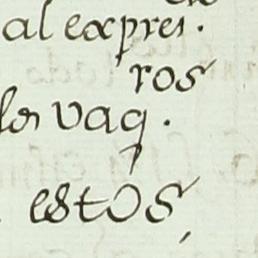 al expres.
ros
los vaq.
estos,